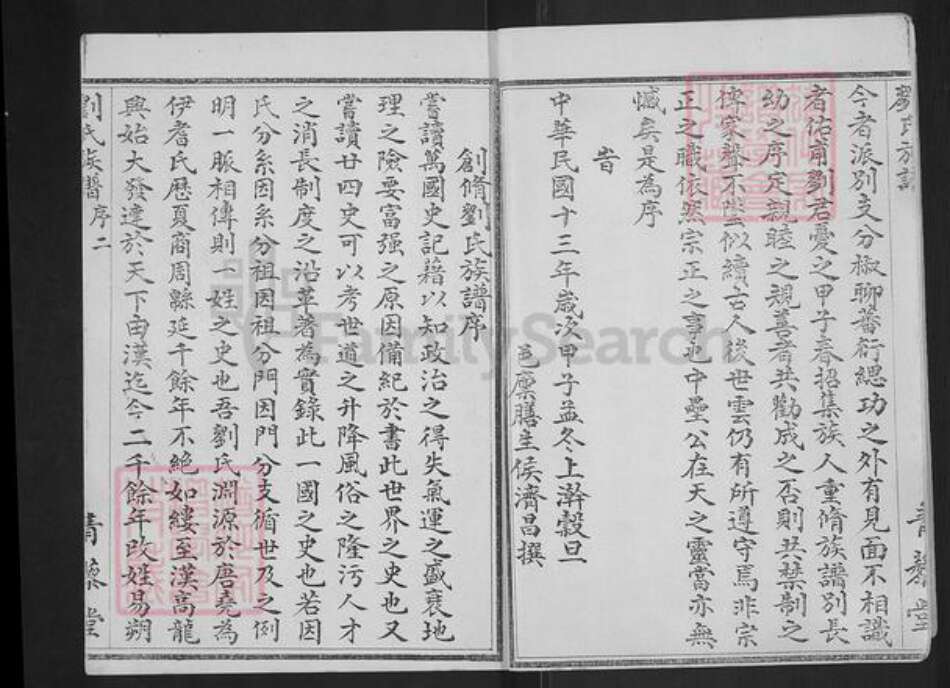 劉氏族譜
今者派別支分椒聊蕃衍緦功之外有見面不相識
者佑甫劉君憂之甲子春招集族人重脩族譜別長
幼之序定親睦之規善者共勸成之否則共禁制之
俾家聲不墜似續古人後世雲仍有所遵守焉非宗
正之職依然宗正之事也中壘公在天之靈當亦無
憾矣是為序
旹
中華民國十三年歲次甲子孟冬上澣穀旦
邑廩膳生侯濟昌撰
青藜堂
創脩劉氏族譜序
嘗讀萬國史記藉以知政治之得失氣運之盛衰地
理之險要富强之原因備紀於書此世界之史也又
嘗讀廿四史可以考世道之升降風俗之隆污人才
之消長制度之沿革著為實錄此一國之史也若因
氏分系因系分祖因祖分門因門分支循世及之例
明一脈相傳則一姓之史也吾劉氏淵源於唐堯為
伊耆氏歷夏商周緜延千餘年不絕如縷至漢高龍
興始大發達於天下由漢迄今二千餘年改姓易朔
劉氏族譜序二
青藜堂
FamilySearch